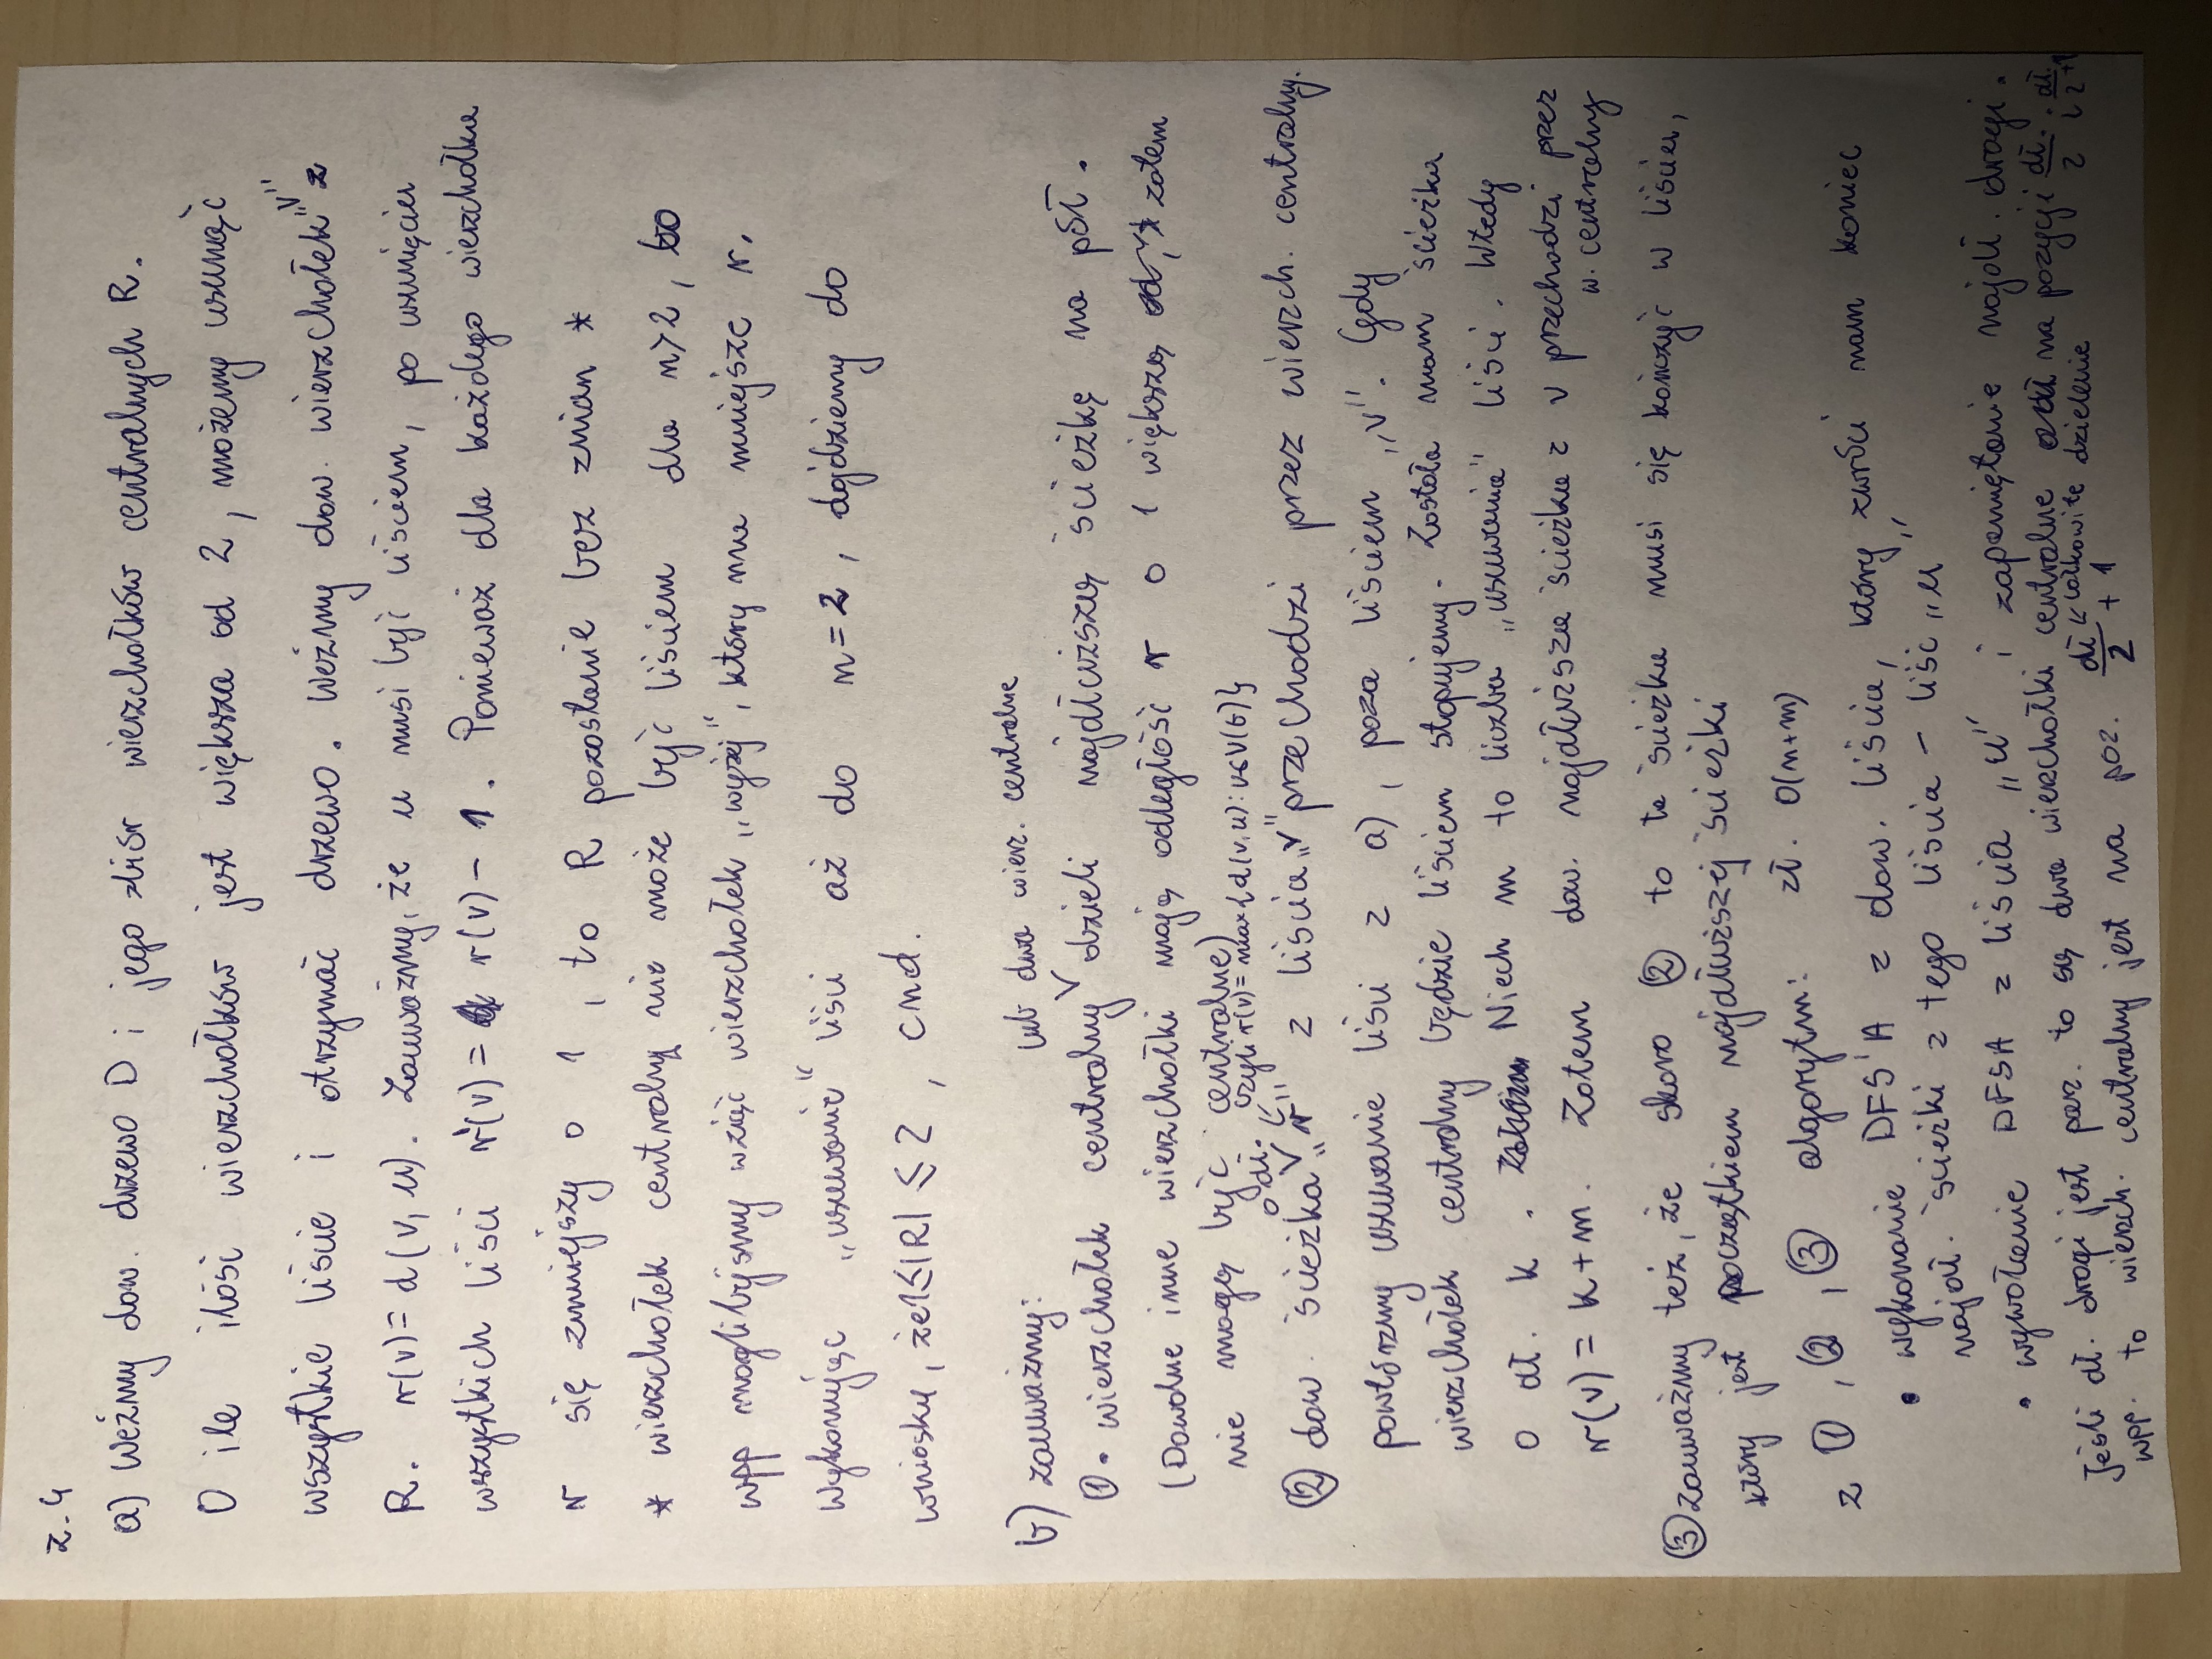 z.4
a) Weźmy dow. drzewo D i jego zbiór wierzchołków centralnych R.
O ile ilość wierzchołków jest większa od 2, możemy usunąć
wszystkie liście i otrzymać drzewo. Weźmy dow. wierzchołek "v" z
R. r(v) = d(v, u). Zauważmy, że u musi być liściem, po usunięciu
wszystkich liści r'(v) = r(v) - 1. Ponieważ dla każdego wierzchołka
r się zmniejszy o 1, to R pozostanie bez zmian *
* wierzchołek centralny nie może być liściem dla n>2, bo
wpp moglibyśmy wziąć wierzchołek „wyżej", który ma mniejsze r.
Wykonując „usuwanie" liści aż do n=2, dojdziemy do
wniosku, że 1≤|R| ≤ 2, cnd.
b) zauważmy:
lub dwa wierz. centralne
①. wierzchołek centralny ∨ dzieli najdłuższą ścieżkę na pół.
(Dowolne inne wierzchołki mają odległość r o 1 większą, zatem
nie mogą być centralne)
o dł. czyli r(v) = max{d(v,u): u∈V(G)}
② dow. ścieżka ∨ „r" z liścia „v" przechodzi przez wierzch. centralny.
powtórzmy usuwanie liści z a), poza liściem „v". Gdy
wierzchołek centralny będzie liściem stopujemy. Została nam ścieżka
o dł. k. Niech m to liczba „usuwania" liści. Wtedy
r(v) = k+m. Zatem dow. najdłuższa ścieżka z v przechodzi przez
w. centralny
③ zauważmy też, że skoro ② to ta ścieżka musi się kończyć w liściu,
który jest początkiem najdłuższej ścieżki
z ①, ②, ③ algorytm: zł. O(n+m)
• wykonanie DFS'A z dow. liścia, który zwróci nam koniec
najdł. ścieżki z tego liścia - liść „u"
• wywołanie DFSA z liścia „u" i zapamiętanie najdł. drogi.
Jeśli dł. drogi jest parz. to są dwa wierzchołki centralne na pozycji dł./2 i dł./2+1
wpp. to wierzch. centralny jest na poz. dł/2 + 1 ← całkowite dzielenie